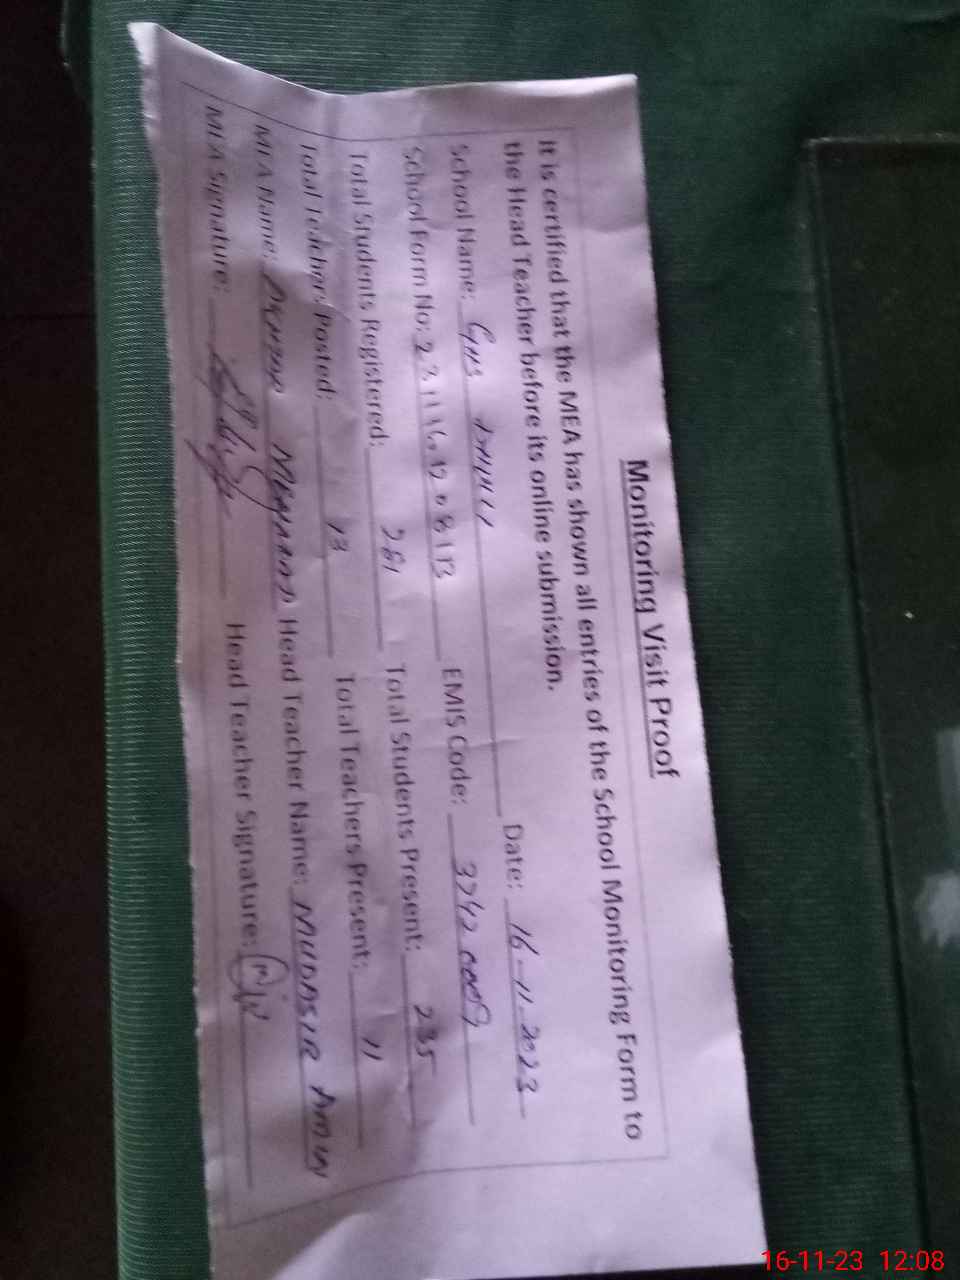 Monitoring Visit Proof
It is certified that the MEA has shown all entries of the School Monitoring Form to
the Head Teacher before its online submission.
School Name: GHS Date: 16-11-2023
School Form No: EMIS Code:
Total Students Registered: 261 Total Students Present: 235
Total Teachers Posted: 13 Total Teachers Present: 11
MEA Name: Head Teacher Name: MUDASIR AMIN
MEA Signature: Head Teacher Signature:
16-11-23 12:08